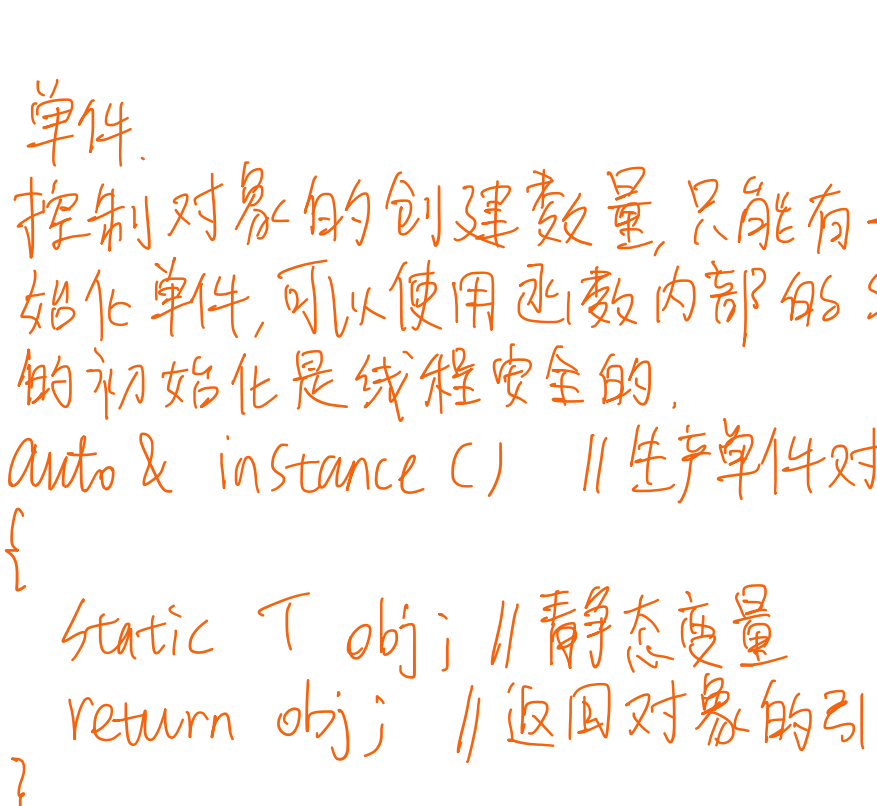 单件.
控制对象的创建数量,只能有一
始化单件,可以使用函数内部的s
的初始化是线程安全的.
auto& instance() //生产单件对
{
static T obj; //静态变量
return obj; //返回对象的引
}